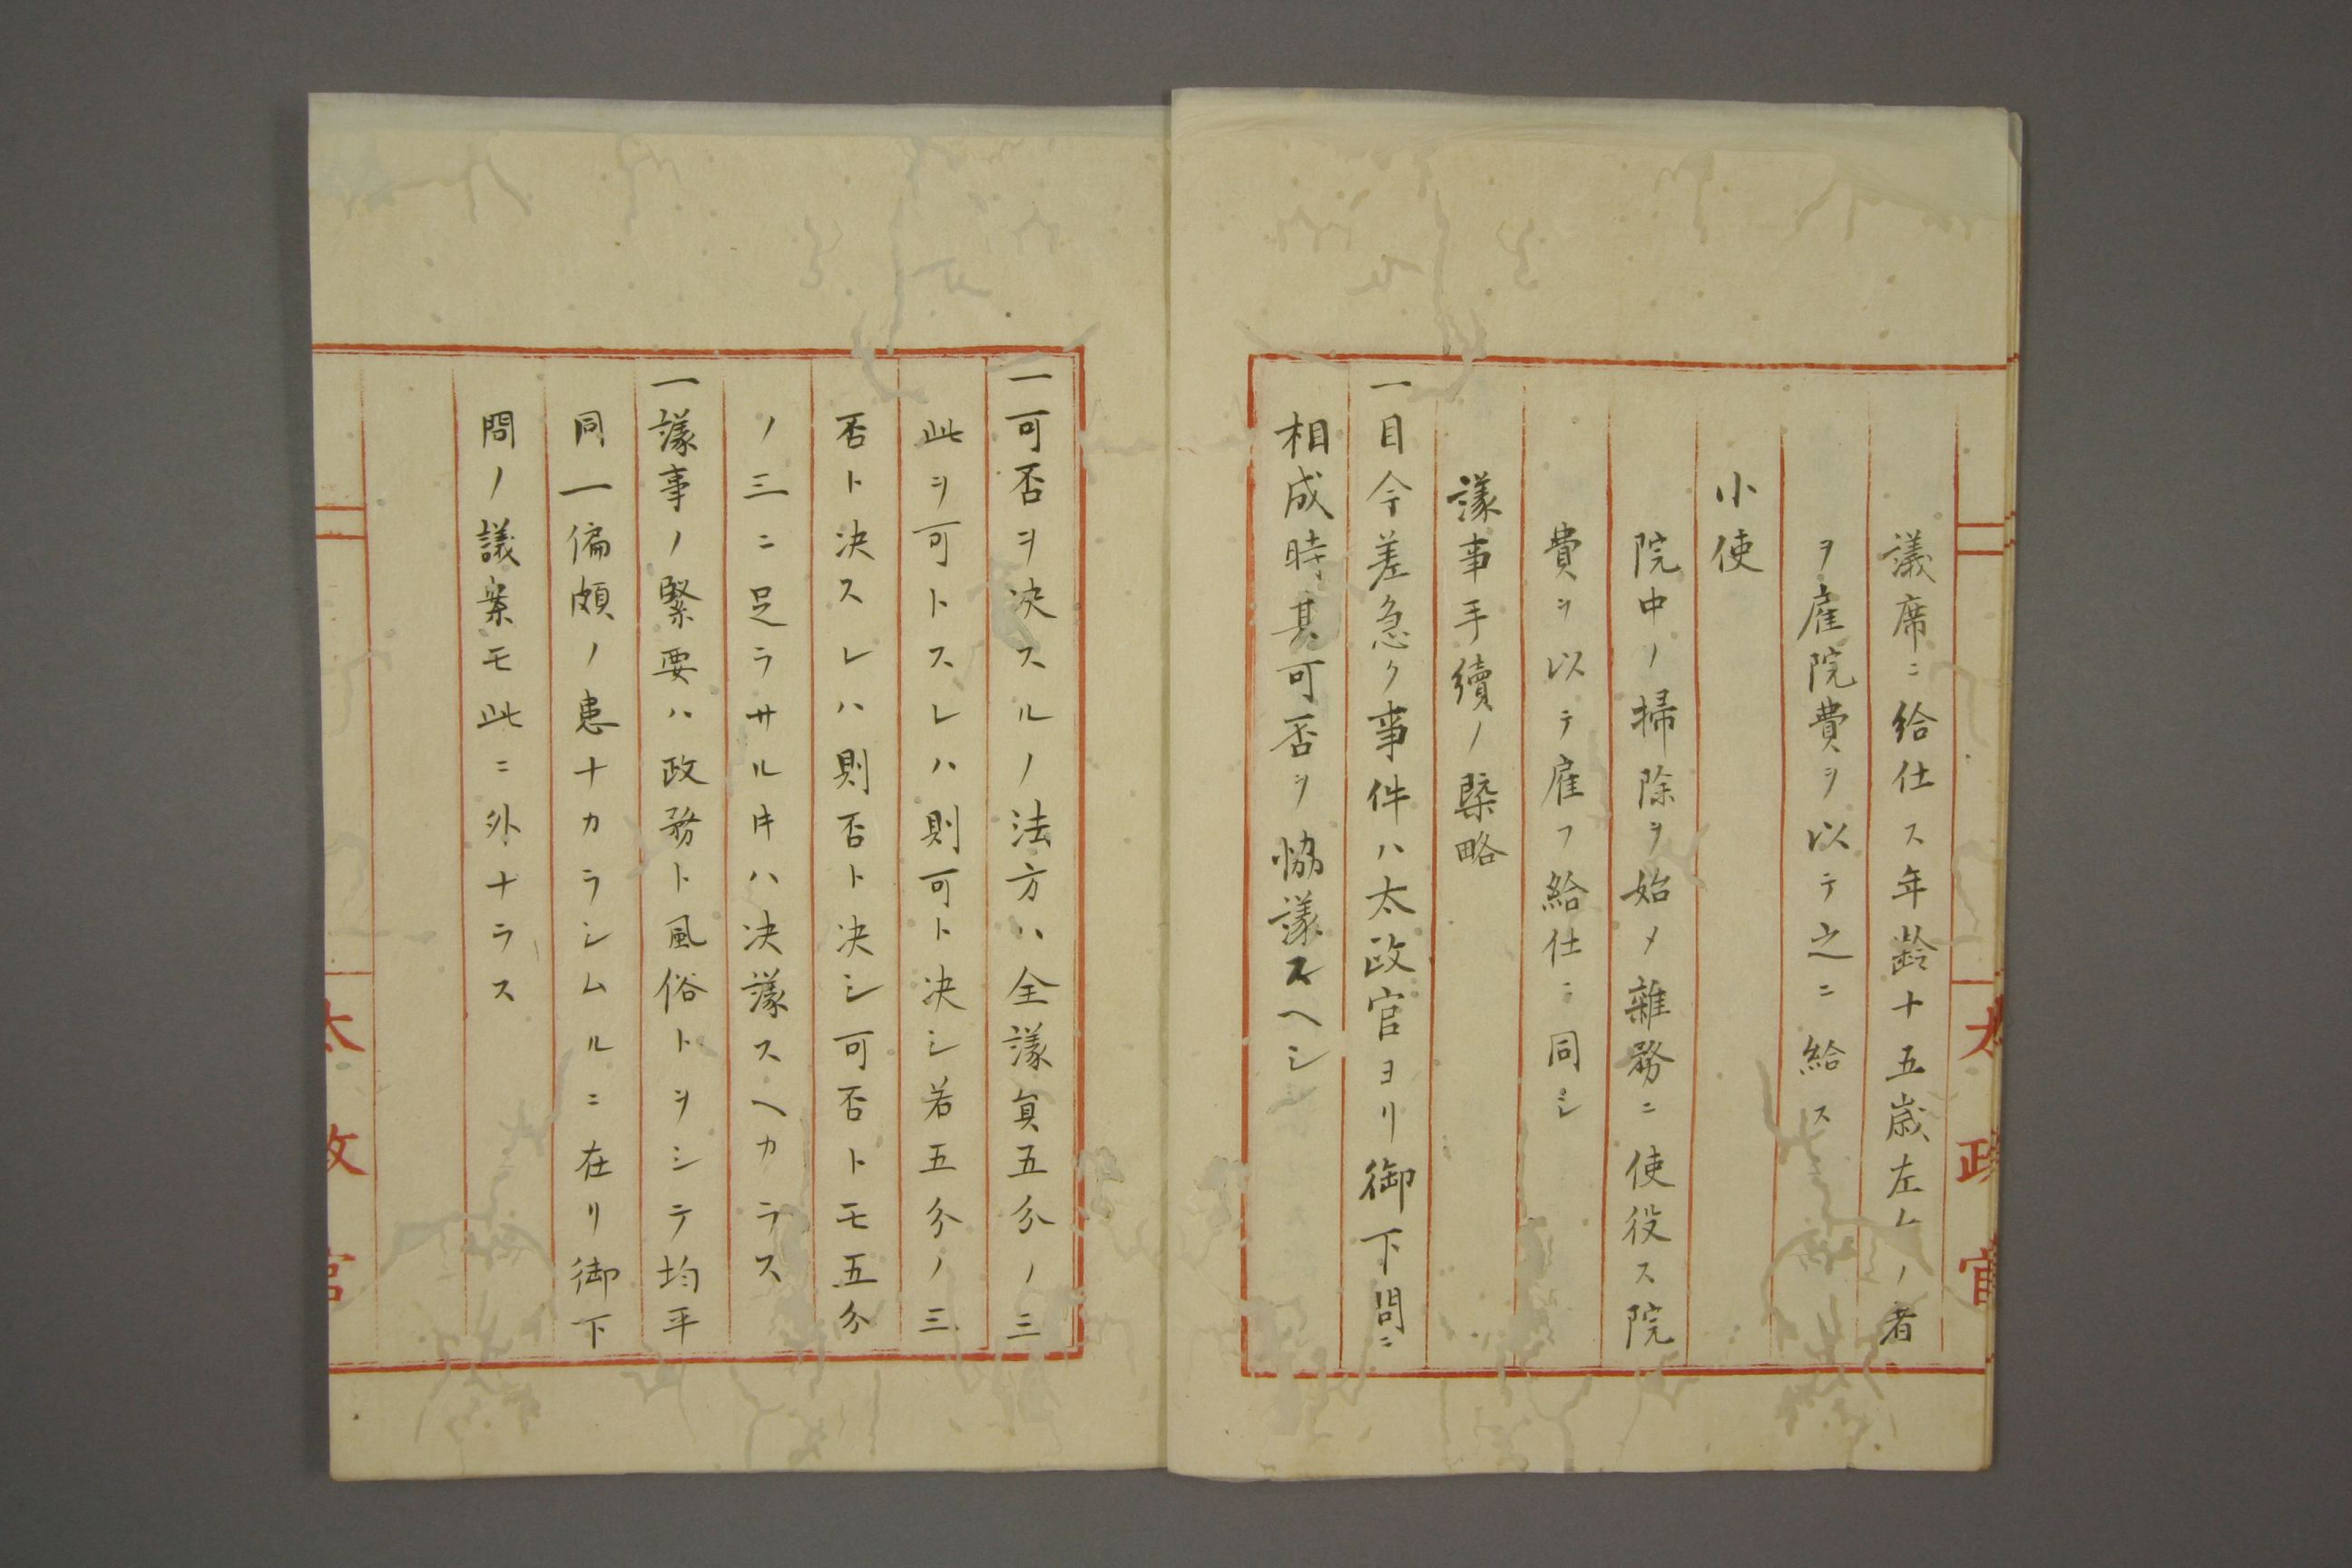 議席ニ給仕ス年齢十五歳左ノ者
ヲ雇院費ヲ以テ之ニ給ス
小使
院中ノ掃除ヲ始メ雜務ニ使役ス院
費ヲ以テ雇フ給仕ニ同シ
議事手續ノ槩略
一目今差急ク事件ハ太政官ヨリ御下問ニ
相成時其可否ヲ協議スヘシ
太政官
一可否ヲ决スルノ法方ハ全議員五分ノ三
此ヲ可トスレハ則可ト决シ若五分ノ三
否ト决スレハ則否ト决シ可否トモ五分
ノ三ニ足ラサル時ハ决議スヘカラス
一議事ノ緊要ハ政務ト風俗トヲシテ均平
同一偏頗ノ患ナカラシムルニ在リ御下
問ノ議案モ此ニ外ナラス
太政官